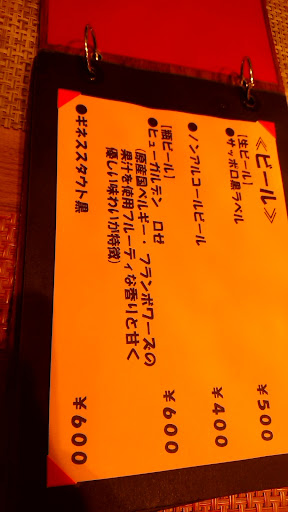 ≪ビール≫
[生ビール]
●サッポロ黒ラベル ¥500
●ノンアルコールビール ¥400
[瓶ビール]
●ヒューガルデン ロゼ ¥600
(原産国ベルギー・フランボワーズの
果汁を使用フルーティな香りと甘く
優しい味わいが特徴)
●ギネススタウト黒 ¥600